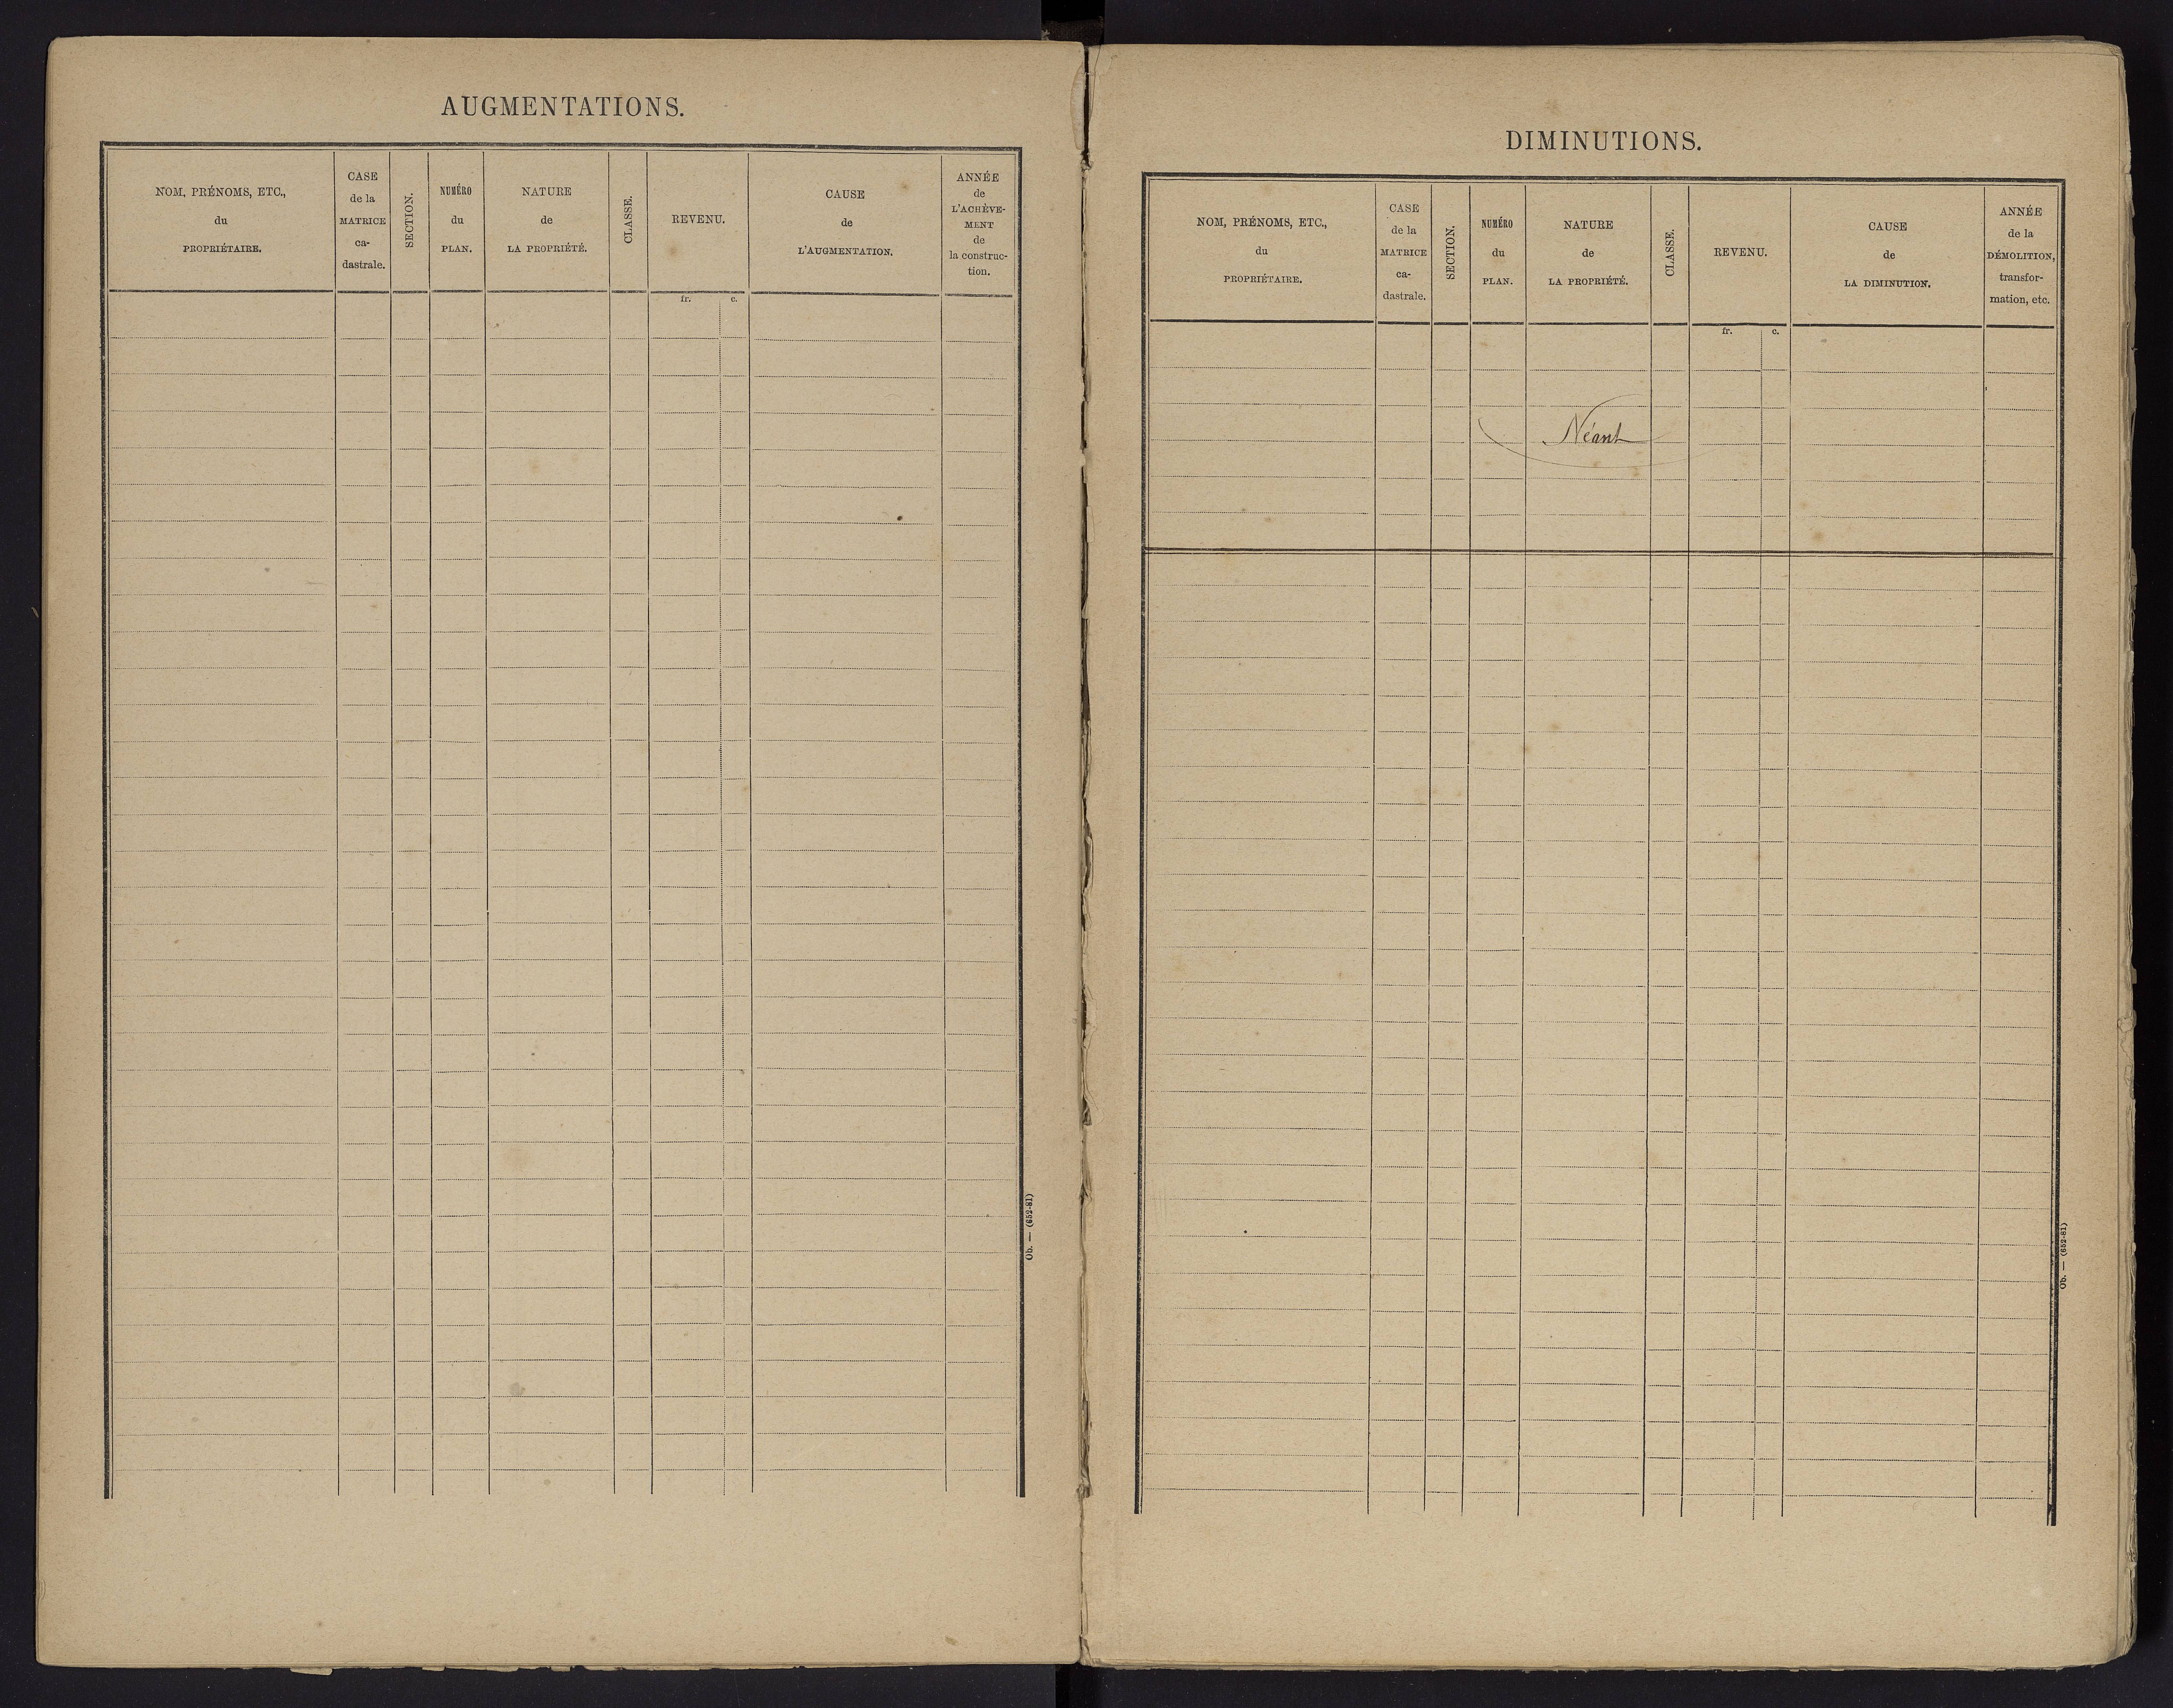 AUGMENTATIONS.
NOM, PRÉNOMS, ETC.,
du
PROPRIÉTAIRE.
CASE
de la
MATRICE
ca-
dastrale.
SECTION.
NUMÉRO
du
PLAN.
NATURE
de
LA PROPRIÉTÉ.
CLASSE.
REVENU.
CAUSE
de
L'AUGMENTATION.
ANNÉE
de
L'ACHÈVE-
MENT
de
la construc-
tion.
fr. c.
Ob. — (652-81)
DIMINUTIONS.
NOM, PRÉNOMS, ETC.,
du
PROPRIÉTAIRE.
CASE
de la
MATRICE
ca-
dastrale.
SECTION.
NUMÉRO
du
PLAN.
NATURE
de
LA PROPRIÉTÉ.
CLASSE.
REVENU.
CAUSE
de
LA DIMINUTION.
ANNÉE
de la
DÉMOLITION,
transfor-
mation, etc.
fr. c.
Néant
Ob. — (652-81)